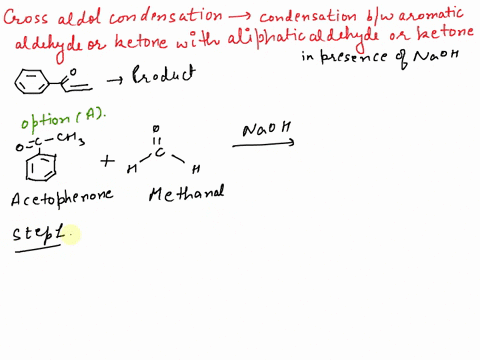 Cross aldol condensation → condensation b/w aromatic
aldehyde or ketone with aliphatic aldehyde or ketone
in presence of NaOH
O
→ Product
option (A).
O=C-CH3
+
O
C
H H
NaOH
Acetophenone Methanal
Step 1.